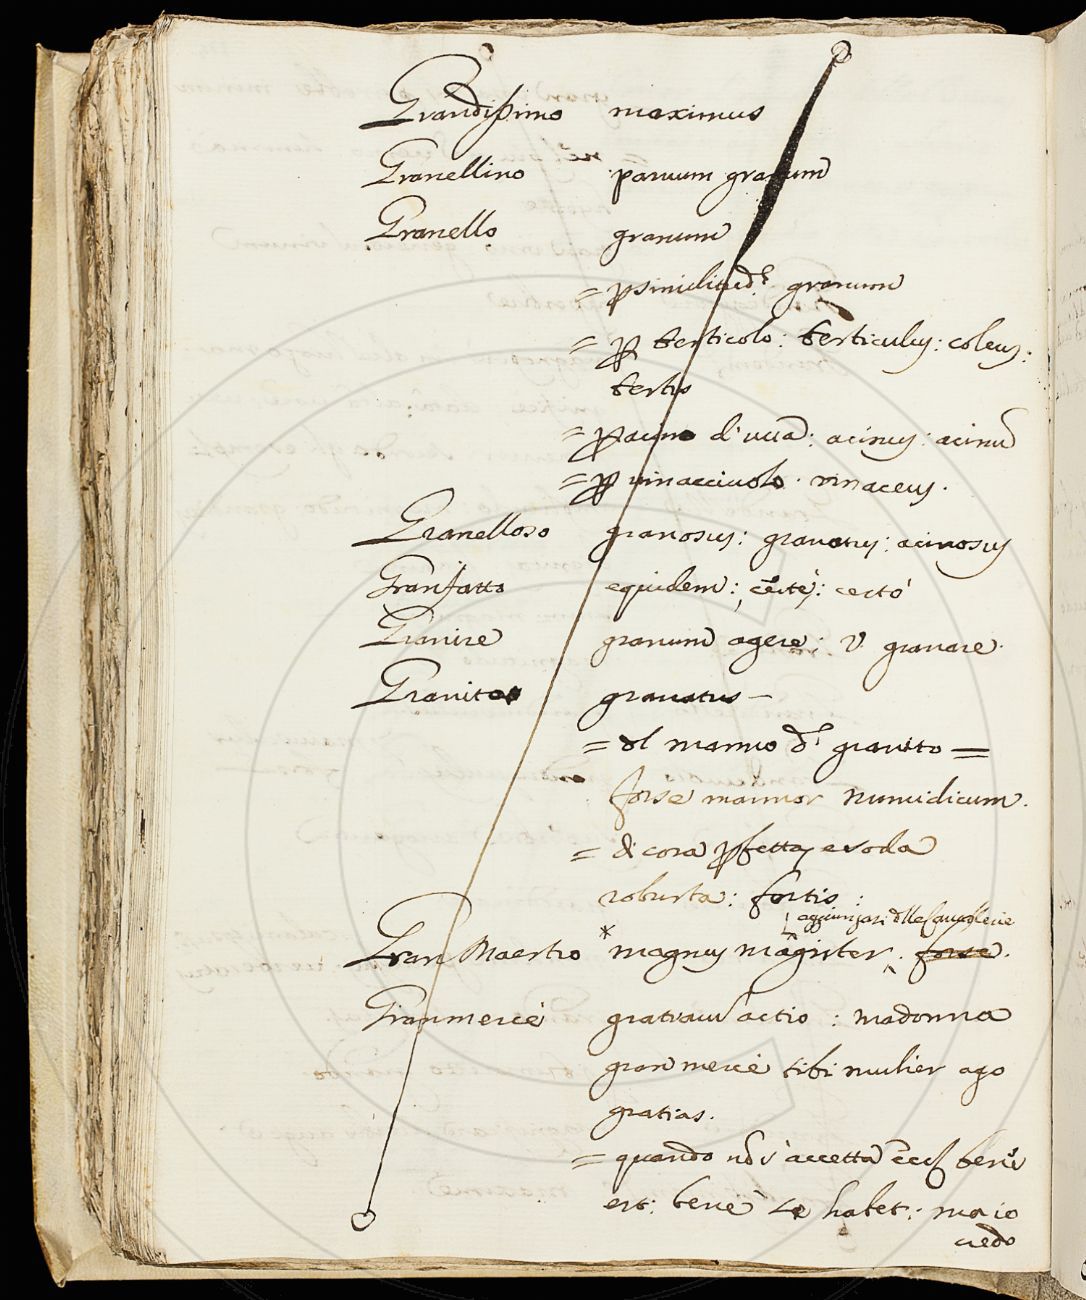 Grandissimo maximus
Granellino paruum granum
Granello granum
= p similitud.e granum
= p testicolo: testiculus: coleus:
testis
= p acino d'uua: acinus: acinū
= p uinacciuolo. vinaceus.
Granelloso granosus: granatus: acinosus
Granfatto equidem: certè: certò
Granire granum agere; V. granare.
Granito granatus —
= al marmo d.o granito =
forse marmor numidicum.
= di cosa pfetta, e soda
robusta: fortis:
aggiungasi
Gran Maestro * magnus magister. forse.
Granmercè gratiarū actio: madonna
gran mercè tibi mulier ago
gratias.
= quando nō s'accetta benè
est: benè se habet: ma io
credo